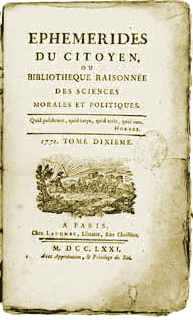 EPHEMERIDES
DU CITOYEN,
OU
BIBLIOTHEQUE RAISONNÉE
DES SCIENCES
MORALES ET POLITIQUES.
Quid pulchrum, quid turpe, quid utile, quid non,
HORACE.
1771. TOME DIXIÈME.
A PARIS,
Chez LACOMBE, Libraire, Rue Christine.
M. DCC. LXXI.
Avec Approbation, & Privilege du Roi.